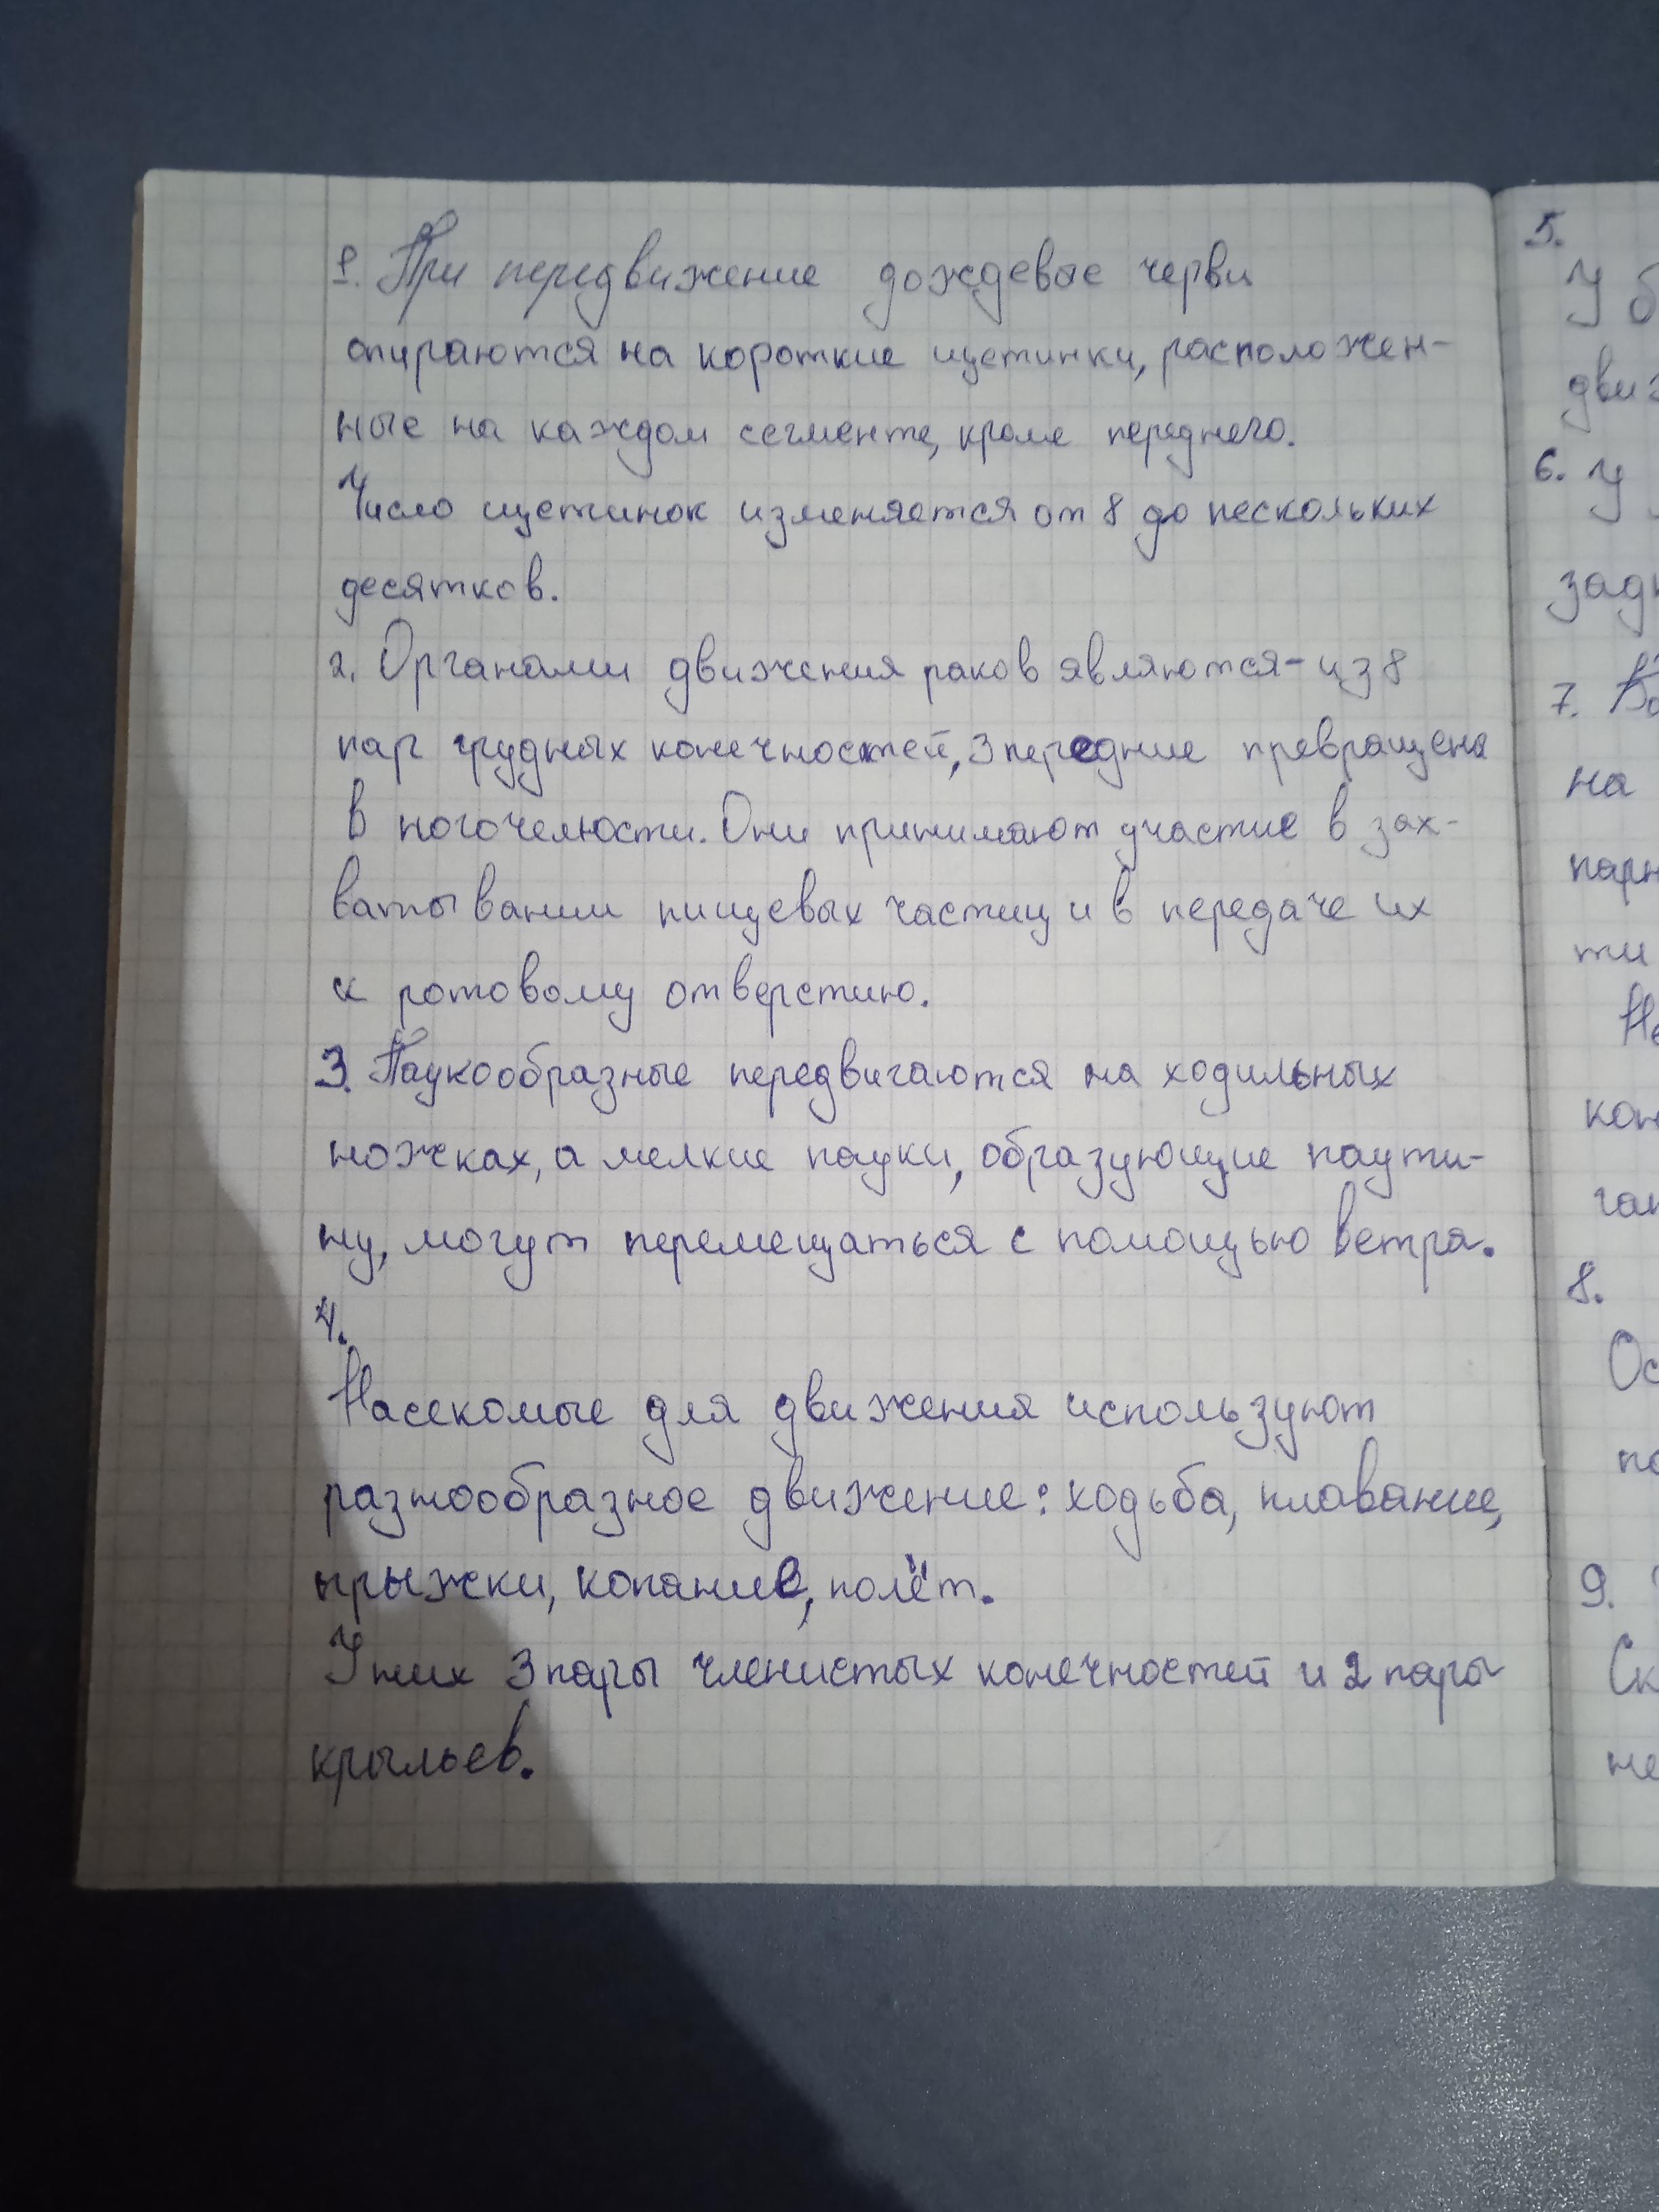 1. При передвижение дождевые черви
опираются на короткие щетинки, расположен-
ные на каждом сегменте, кроме переднего.
Число щетинок изменяется от 8 до нескольких
десятков.
2. Органами движения раков являются - из 8
пар грудных конечностей, 3 передние превращены
в ногочелюсти. Они принимают участие в зах-
ватывании пищевых частиц и в передаче их
к ротовому отверстию.
3. Паукообразные передвигаются на ходильных
ножках, а мелкие пауки, образующие паути-
ну, могут перемещаться с помощью ветра.
4.
Насекомые для движения используют
разнообразное движение: ходьба, плавание,
прыжки, копание, полёт.
У них 3 пары членистых конечностей и 2 пары
крыльев.
5.
У б
6. У
7.
на
парн
ти
8.
Ос
по
9.
Ск
не